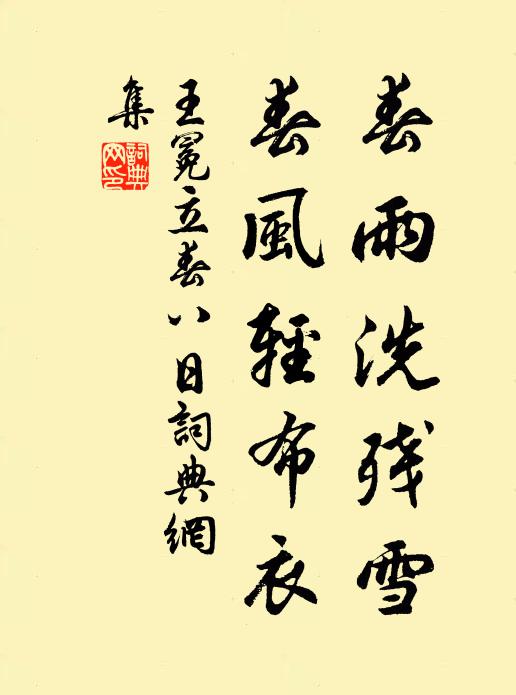 春雨洗残雪
春風輕布衣
王冕立春八日詞典網
集
詞典網印